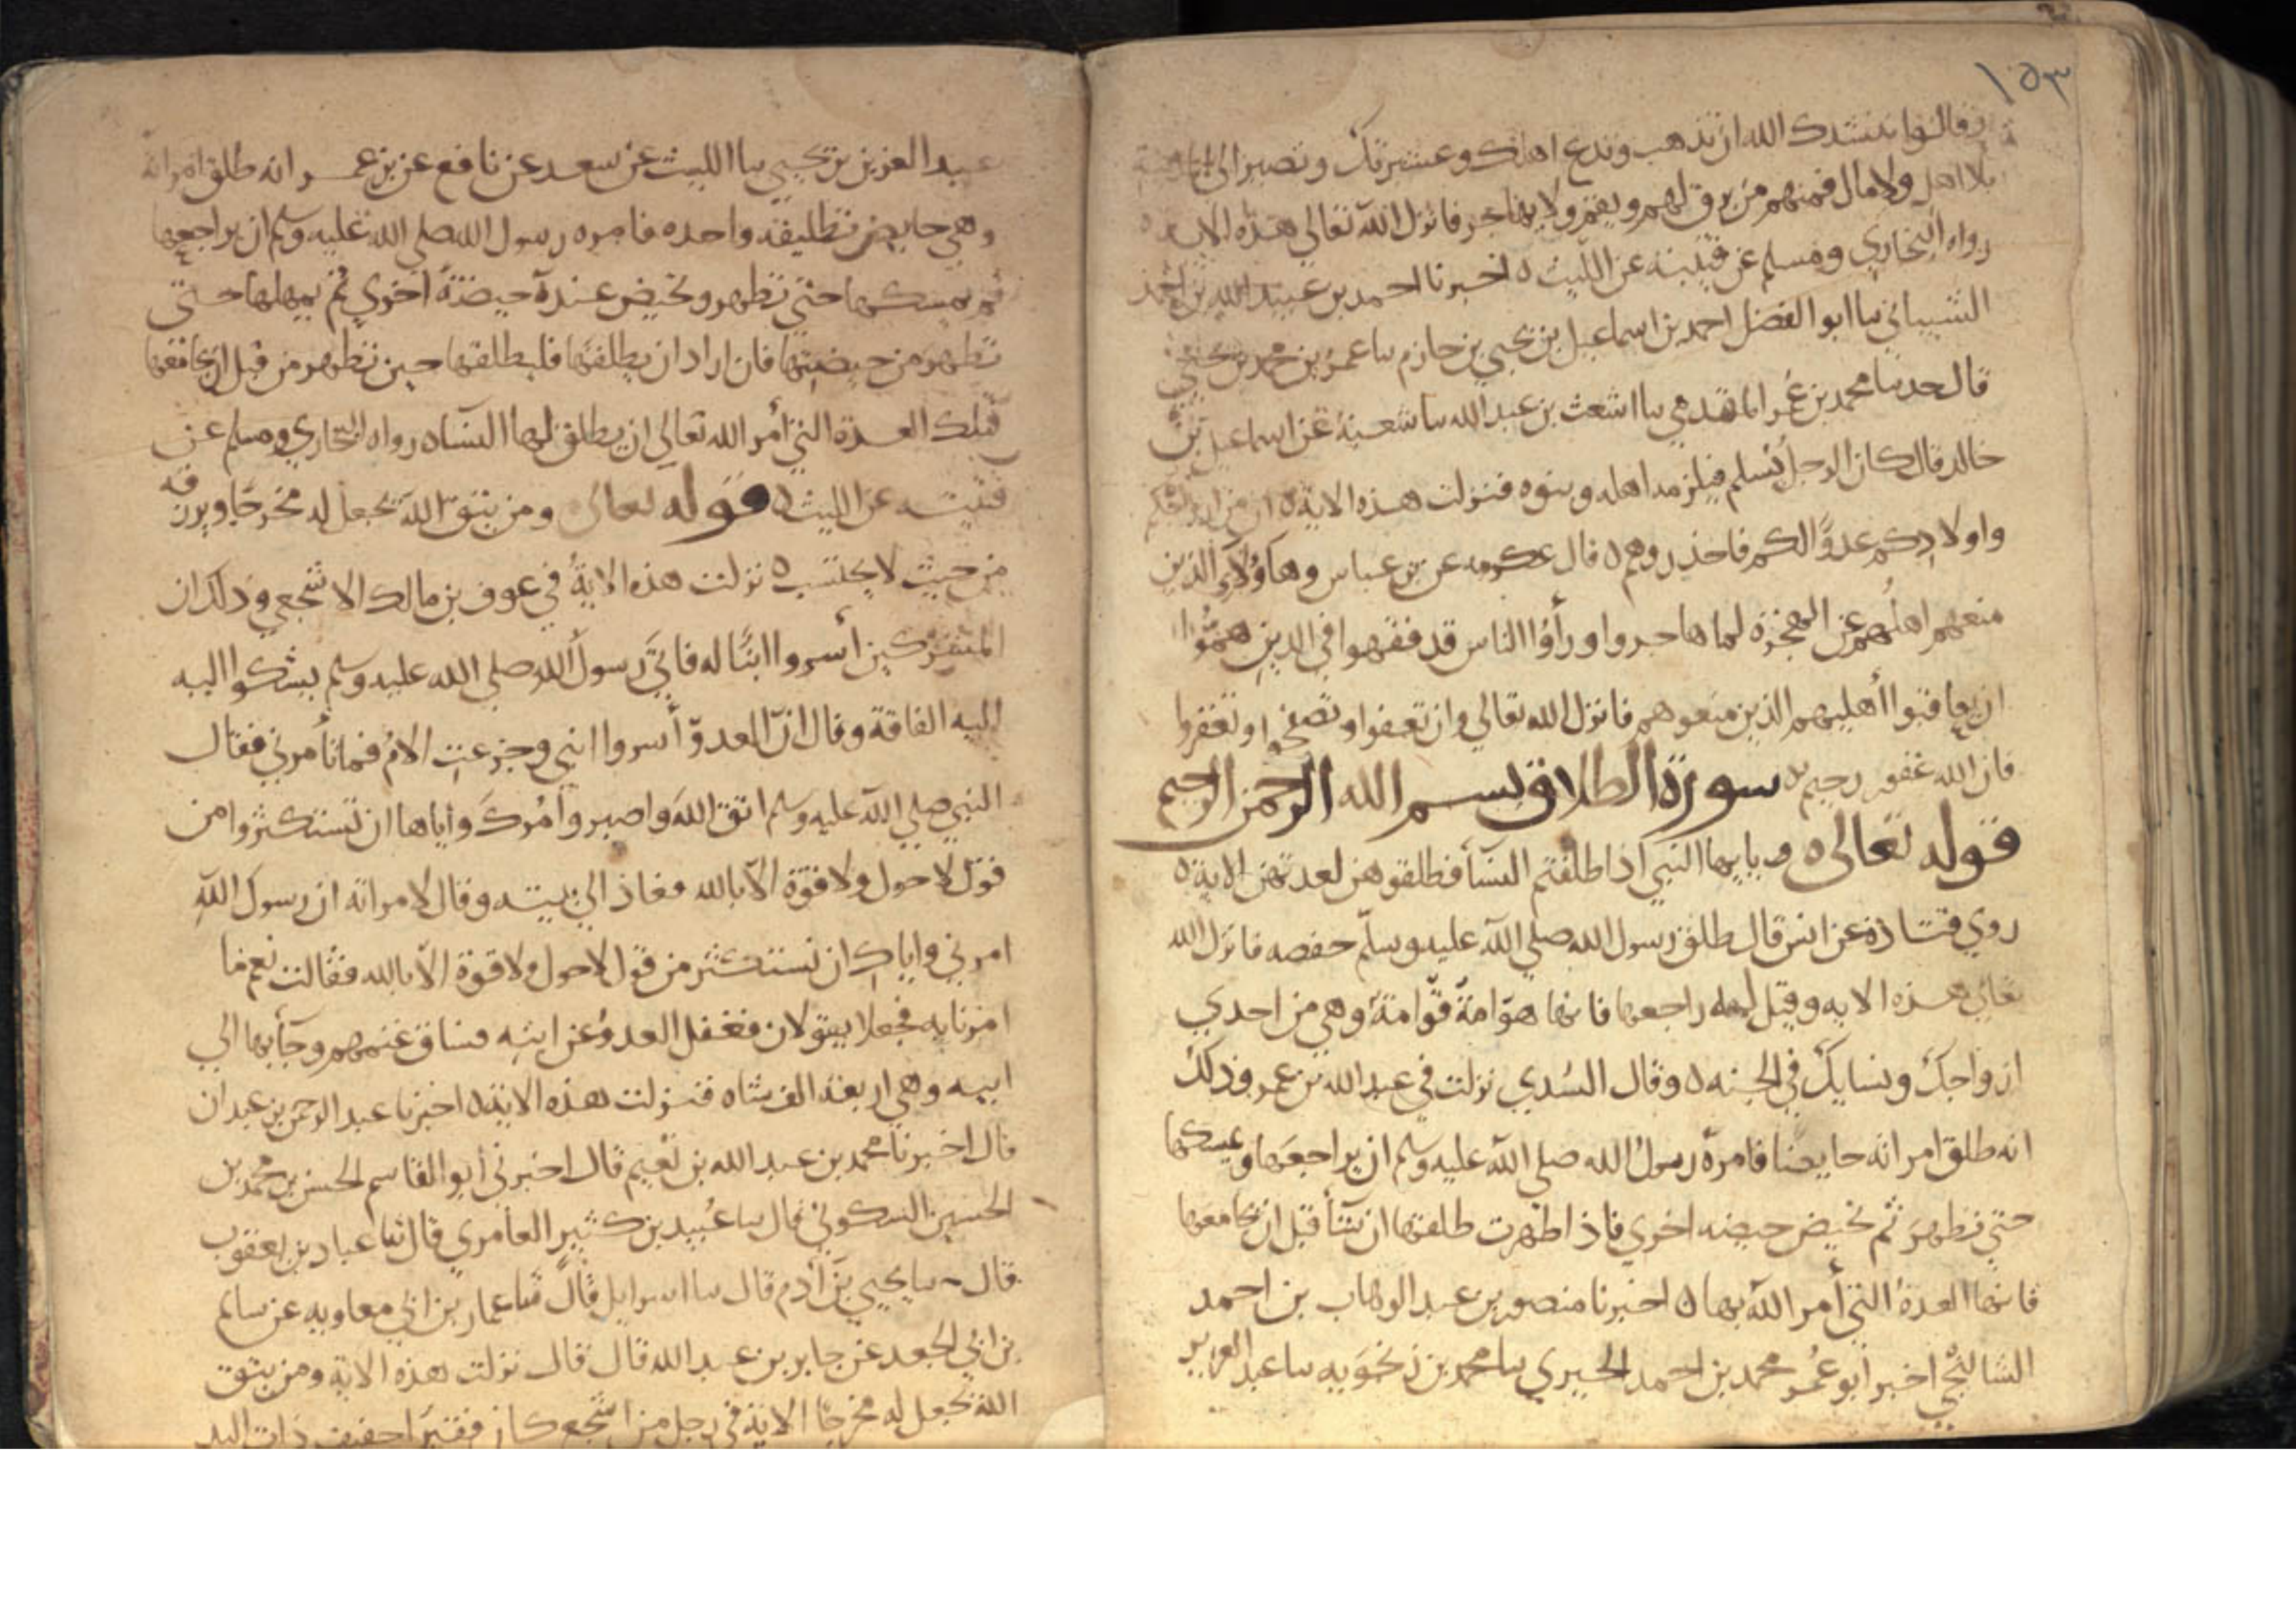 ١٥٣
وقالوا ننشدك الله ان تذهب وتدع اهلك وعشيرتك وتصير الى المدينة
بلا اهل ولا مال فمنهم من يرق لهم ويقيم ولا يهاجر فانزل الله تعالى هذه الاية
رواه البخاري ومسلم عن قتيبة عن الليث ٥ اخبرنا احمد بن عبيد الله بن احمد
الشيباني نبا ابو الفضل احمد بن اسماعيل بن يحيى بن حازم نبا عمر بن محمد بن يحيى
قال حدثنا محمد بن عمر المقدمي نبا اشعث بن عبد الله نبا شعبة عن اسماعيل بن
خالد قال كان الرجل يسلم فيلزمه اهله وبنوه فنزلت هذه الاية ٥ ان من ازواجكم
واولادكم عدوًا لكم فاحذروهم ٥ قال عكرمه عن بن عباس وهاؤلاء الذين
منعهم اهلهم عن الهجرة لما هاجروا ورأوا الناس قد فقهوا في الدين همّوا
ان يعاقبوا أهليهم الذين منعوهم فانزل الله تعالى وان تعفوا وتصفحوا وتغفروا
فان الله غفور رحيم ٥ سورة الطلاق بسم الله الرحمن الرحيم
قوله تعالى ٥ يايها النبي اذا طلقتم النسآ فطلقوهن لعدتهن الاية ٥
روي قتادة عن انس قال طلق رسول الله صلى الله عليه وسلّم حفصه فانزل الله
تعالى هذه الايه وقيل له راجعها فانها صوّامة قوّامة وهي من احدي
ازواجك ونسايك في الجنه ٥ وقال السُدي نزلت في عبد الله بن عمر وذلك
انه طلق امراته حايضًا فامره رسول الله صلى الله عليه وسلم ان يراجعها ويمسكها
حتى تطهر ثم تحيض حيضه اخري فاذا طهرت طلقها ان شآ قبل ان يجامعها
فانها العدة التي أمر الله بها ٥ اخبرنا منصور بن عبد الوهاب بن احمد
الشالنجي اخبر ابو عُمر محمد بن احمد الحيري نبا محمد بن زنجويه نبا عبد العزيز
عبد العزيز بن يحيي نبا الليث عن سعد عن نافع عن بن عمر انه طلق امراته
وهي حايض تطليقه واحده فامره رسول الله صلى الله عليه وسلم ان يراجعها
ثم يمسكها حتى تطهر وتحيض عنده حيضة اخري ثم يمهلها حتى
تطهر من حيضتها فان اراد ان يطلقها فليطلقها حين تطهر من قبل ان يجامعها
فتلك العدة التي أمر الله تعالى ان يطلق لها النساء رواه البخاري ومسلم عن
قتيبه عن الليث ٥ قوله تعالى ومن يتق الله يجعل له مخرجًا ويرزقه
من حيث لا يحتسب ٥ نزلت هذه الاية في عوف بن مالك الاشجعي وذلك ان
المشركين أسروا ابنًا له فاتي رسول الله صلى الله عليه وسلم يشكوا اليه
اليه الفاقة وقال انّ العدوّ أسروا ابني وجزعت الام فما تأمرني فقال
النبي صلى الله عليه وسلم اتق الله واصبر وآمرك واياها ان تستكثروا من
قول لا حول ولا قوّة الا بالله فعاد الى بيته وقال لامراته ان رسول الله
امرني واياك ان نستكثر من قول لا حول ولا قوة الا بالله فقالت نعم ما
امرنا به فجعلا يقولان فغفل العدو عن ابنه فساق غنمهم وجآ بها الى
ابيه وهي اربعة الف شاه فنزلت هذه الاية ٥ اخبرنا عبد الرحمن بن عبدان
قال اخبرنا محمد بن عبد الله بن نعيم قال اخبرني أبو القاسم الحسن بن محمد بن
الحسين السكوني قال نبا عُبيد بن كثير العامري قال نبا عباد بن يعقوب
قال نبا يحيي بن آدم قال نبا اسرايل قال نبا عمار بن ابي معاويه عن سالم
بن ابي الجعد عن جابر بن عبد الله قال قال نزلت هذه الاية ومن يتق
الله يجعل له مخرجًا الاية في رجل من اشجع كان فقيرًا خفيف ذات اليد